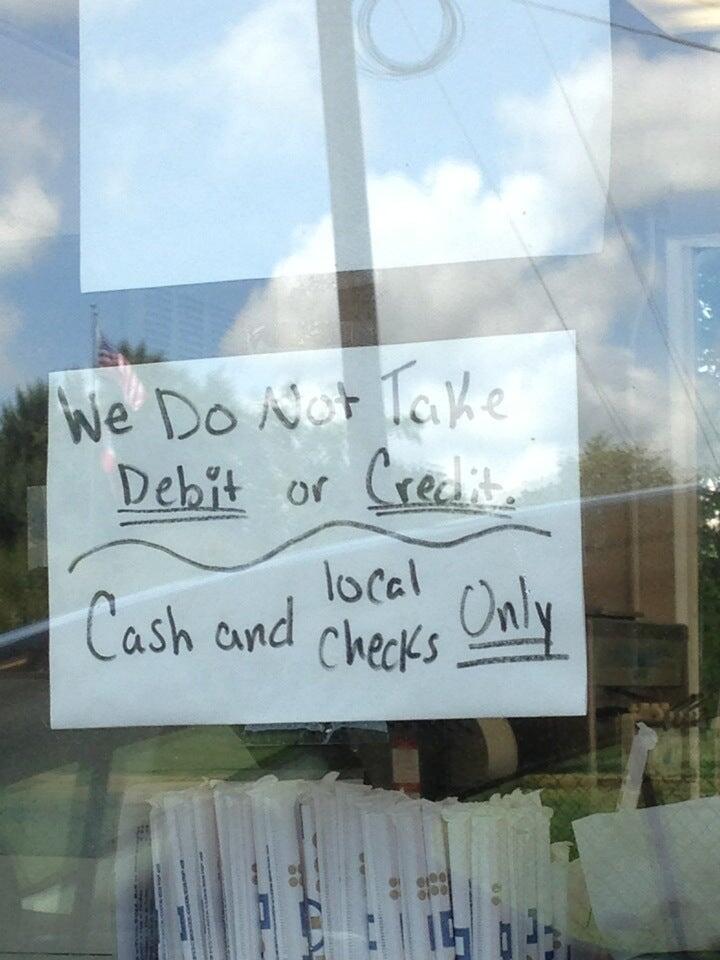 We Do Not Take
Debit or Credit.
Cash and local checks Only